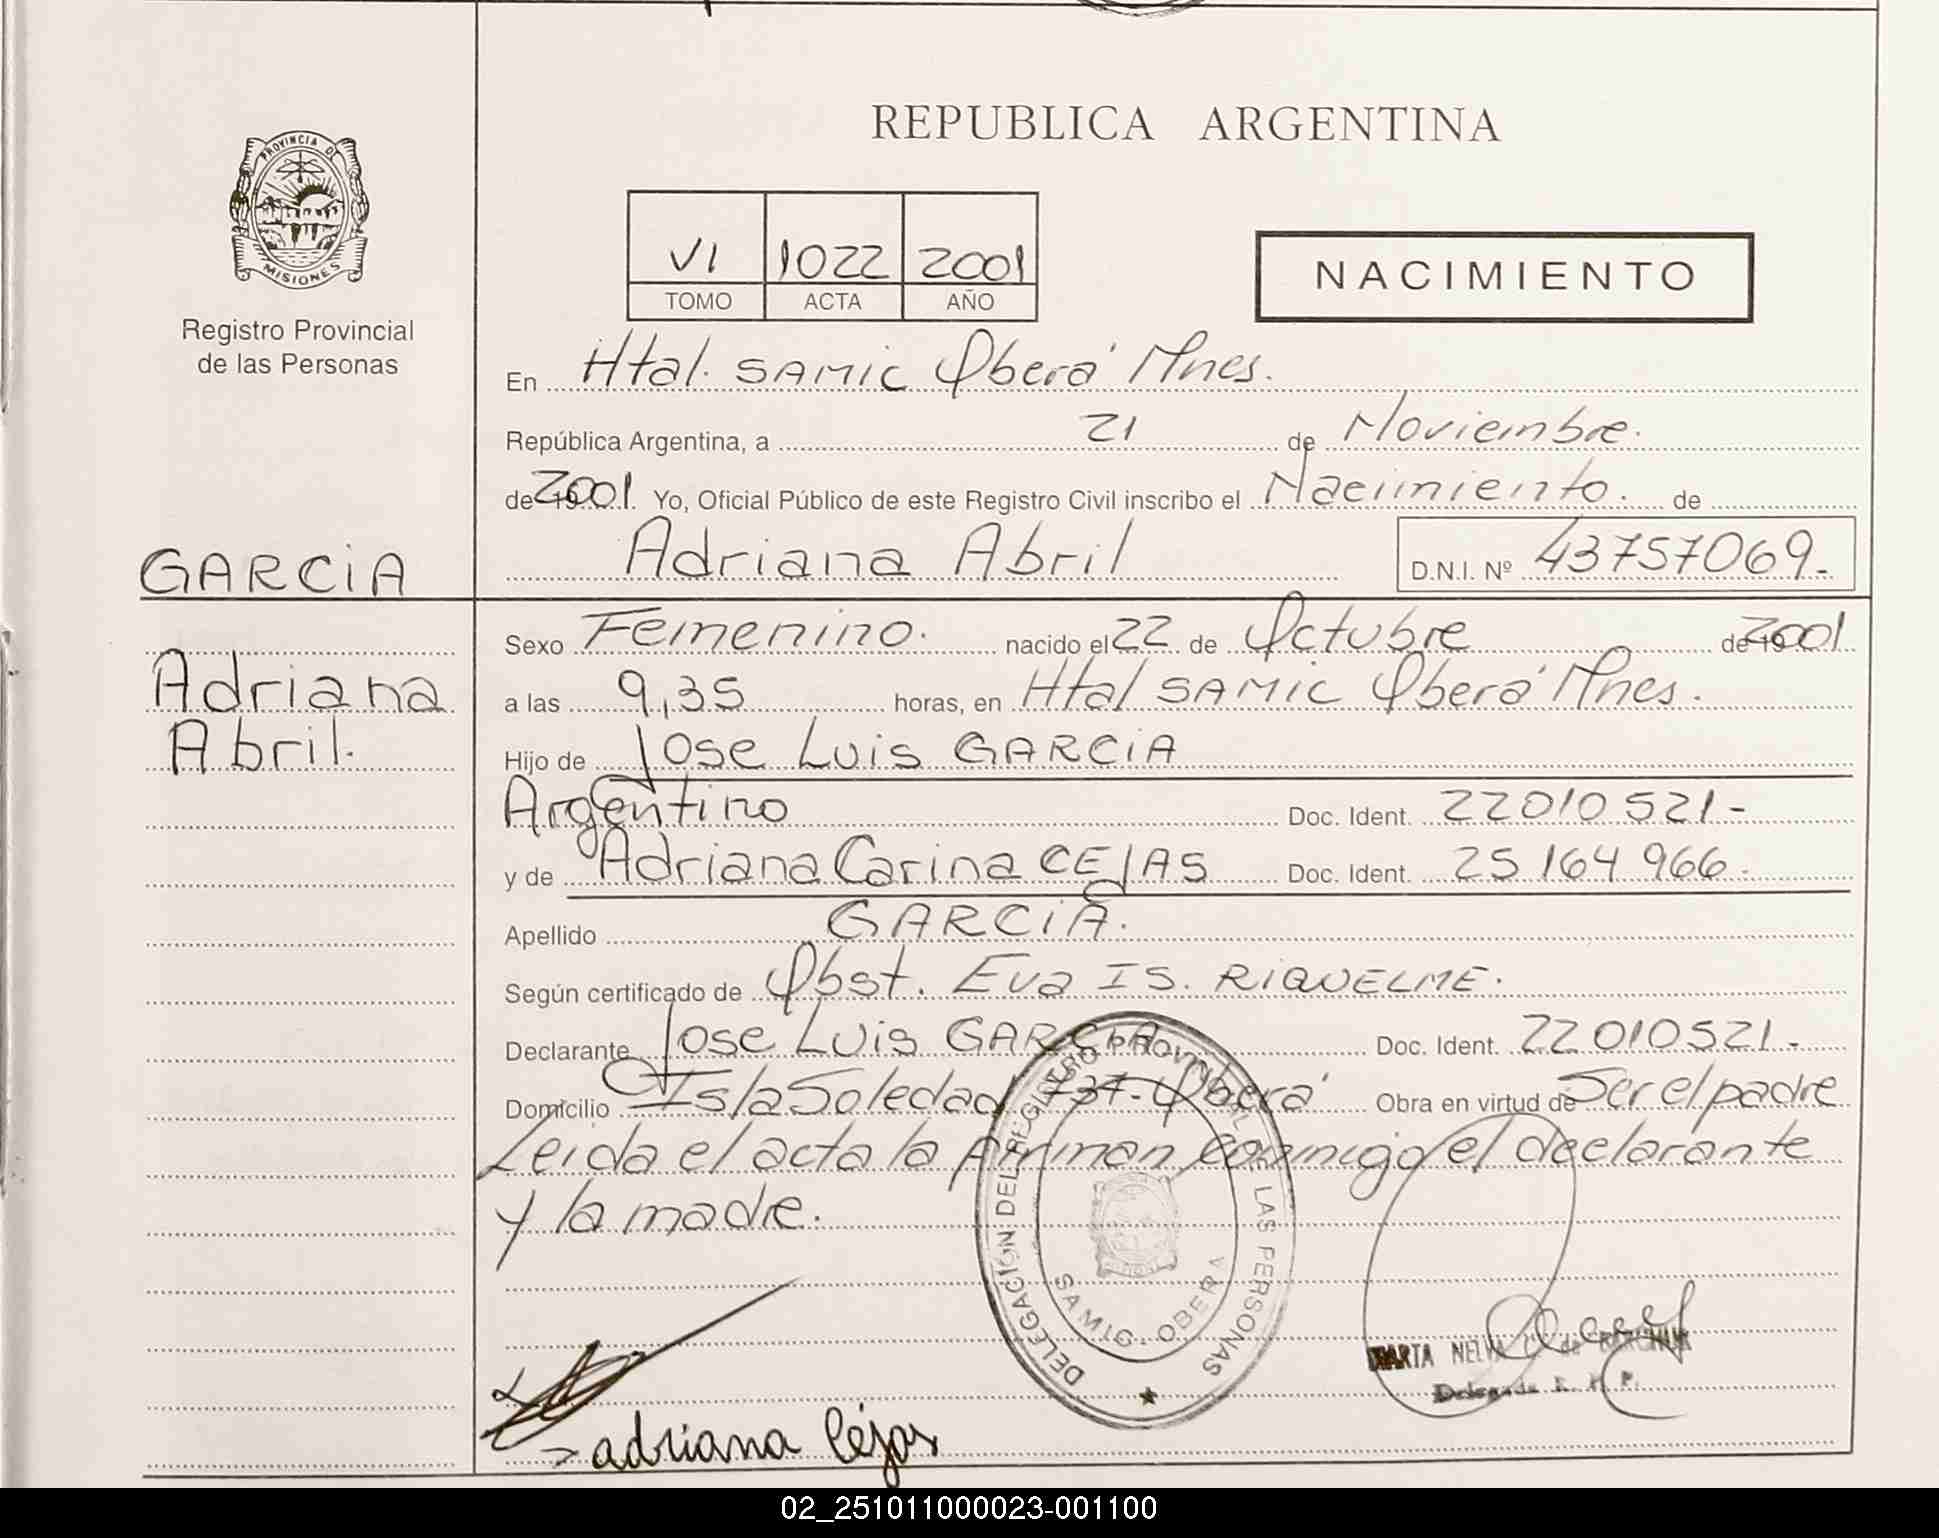 REPUBLICA ARGENTINA
PROVINCIA DE MISIONES
Registro Provincial
de las Personas
VI 1022 2001
TOMO ACTA AÑO
NACIMIENTO
En Htal. SAMIC Oberá Mnes.
República Argentina, a 21 de Noviembre.
de 2001. Yo, Oficial Público de este Registro Civil inscribo el Nacimiento. de
Adriana Abril D.N.I. Nº 43757069-
GARCIA
Adriana
Abril.
Sexo Femenino. nacido el 22 de Octubre de 2001
a las 9,35 horas, en Htal SAMIC Oberá Mnes.
Hijo de Jose Luis GARCIA
Argentino Doc. Ident. 22010521-
y de Adriana Carina CEJAS Doc. Ident. 25164966-
Apellido GARCIA.
Según certificado de Obst. Eva IS. RIQUELME.
Declarante Jose Luis GARCIA Doc. Ident. 22010521-
Domicilio Isla Soledad Oberá Obra en virtud de Ser el padre
Leida el acta la firman conmigo el declarante
y la madre.
DELEGACIÓN DEL REGISTRO PROVINCIAL DE LAS PERSONAS
SAMIC - OBERA
MARTA
adriana Céjas
02_251011000023-001100